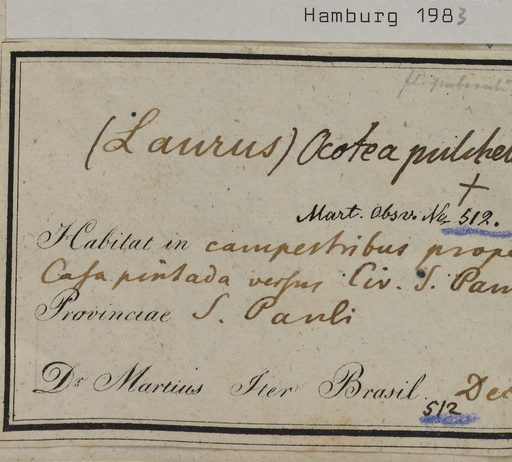 Hamburg 1983
(Laurus) Ocotea pulchel
Mart. Obsv. No 512.
Habitat in campestribus prope
Casa pintada versus Civ. S. Pau
Provinciae S. Pauli
Dr Martius Iter Brasil. Dec
512